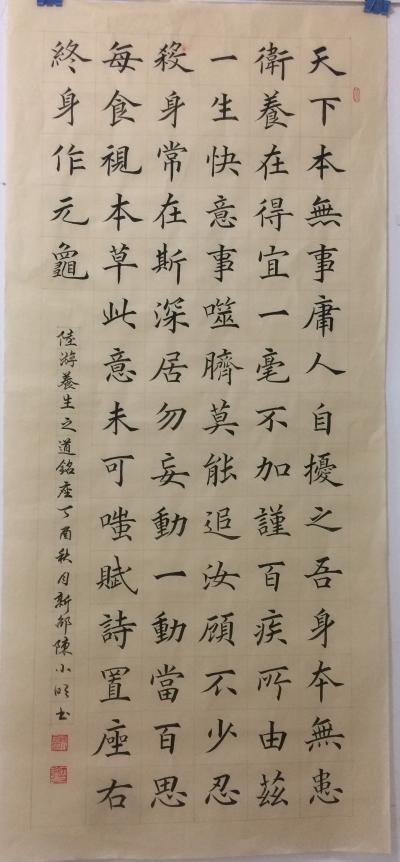 天下本無事庸人自擾之吾身本無患
衛養在得宜一毫不加謹百疾所由茲
一生快意事噬臍莫能追汝顧不少忍
殺身常在斯深居勿妄動一動當百思
每食視本草此意未可嗤賦詩置座右
終身作元龜
陸游養生之道銘座丁酉秋月新邵陳小书